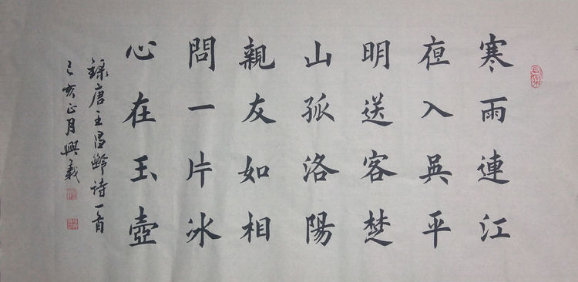 寒雨連江
夜入吳平
明送客楚
山孤洛陽
親友如相
問一片冰
心在玉壺
錄唐王昌齡詩一首
己亥正月興義